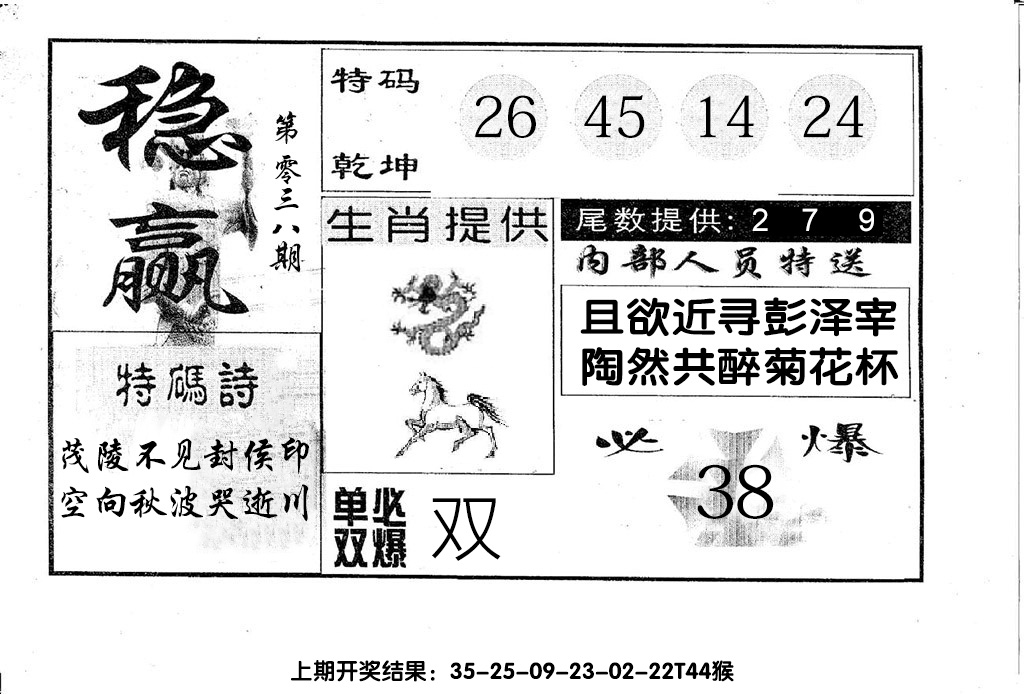 稳赢
第零三八期
特码
乾坤
26 45 14 24
生肖提供
尾数提供: 2 7 9
内部人员特送
且欲近寻彭泽宰
陶然共醉菊花杯
特碼詩
茂陵不见封侯印
空向秋波哭逝川
必爆
38
单双
必爆
双
上期开奖结果：35-25-09-23-02-22T44猴